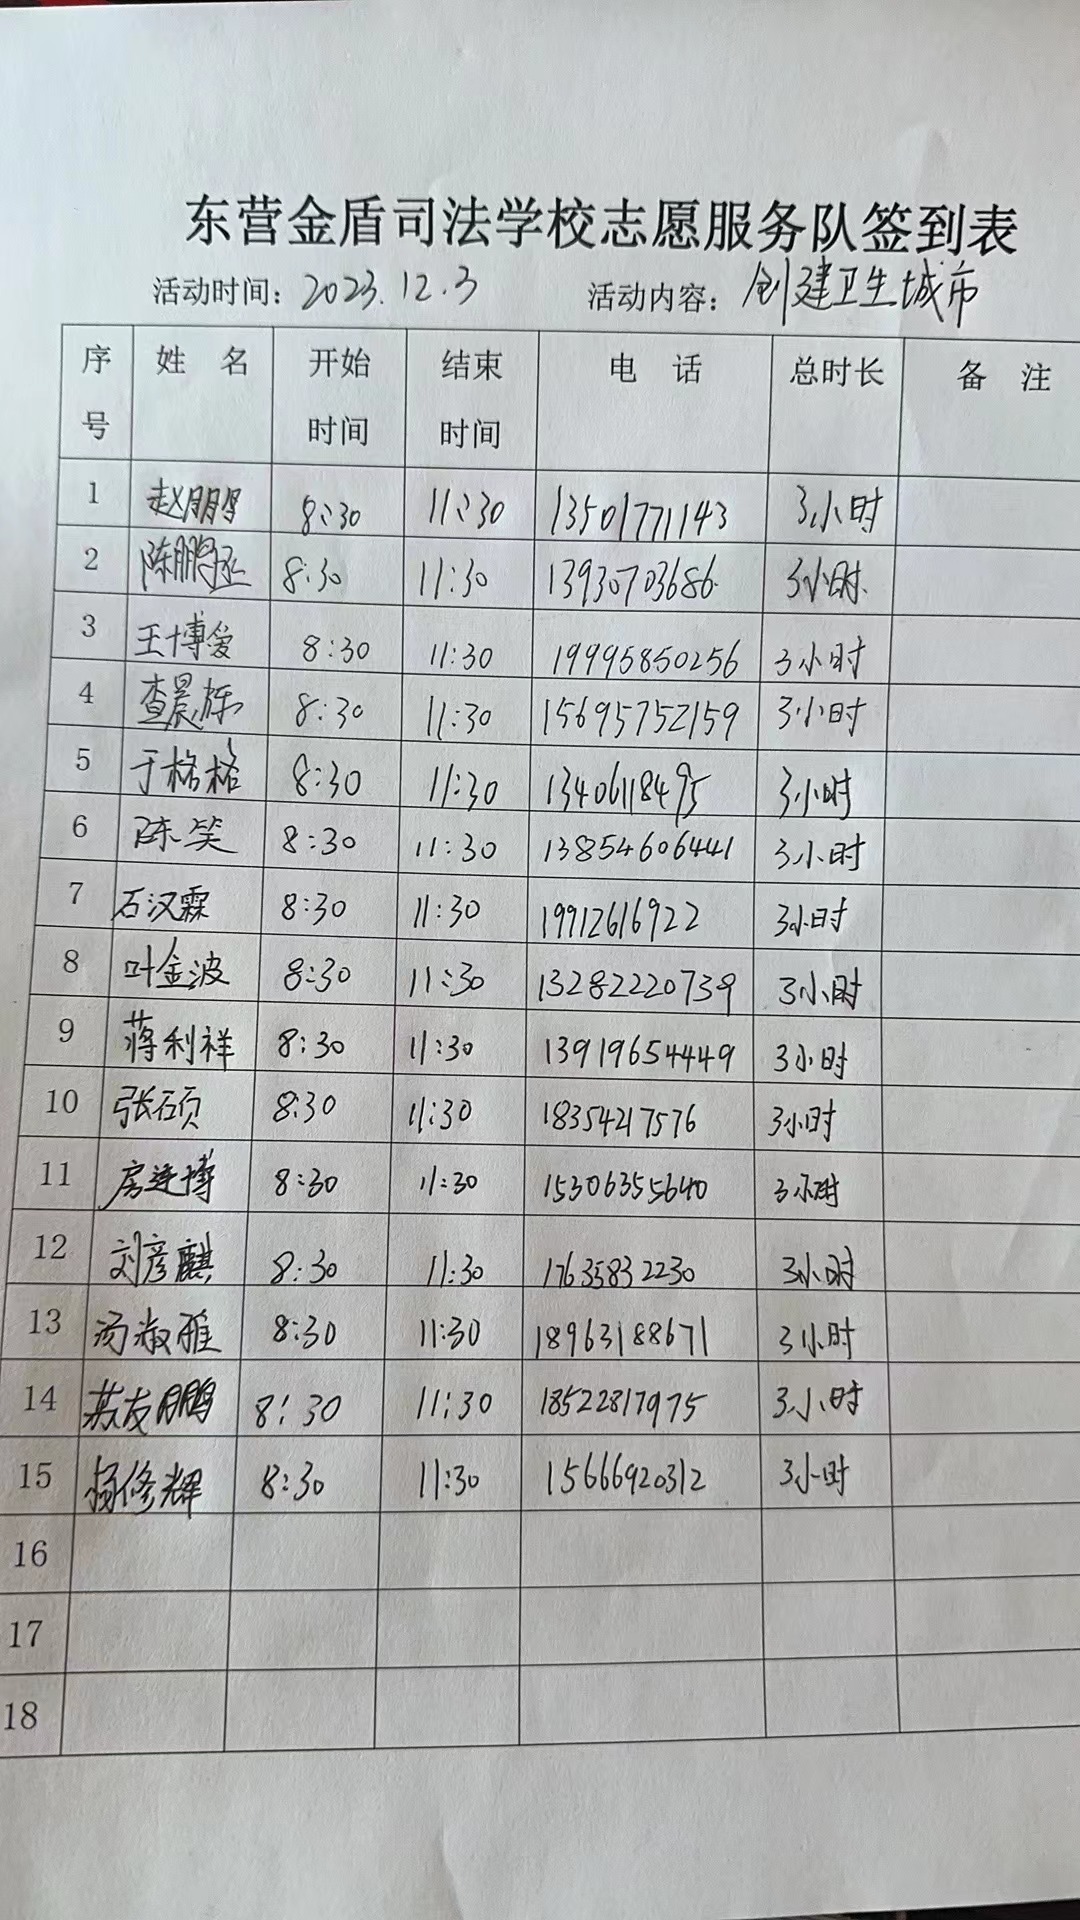 东营金盾司法学校志愿服务队签到表
活动时间：2023.12.3 活动内容：创建卫生城市
序号 姓 名 开始时间 结束时间 电 话 总时长 备 注
1 赵朋鹏 8:30 11:30 13501771143 3小时
2 陈鹏丞 8:30 11:30 13930703686 3小时
3 王博爱 8:30 11:30 19995850256 3小时
4 查晨栋 8:30 11:30 15695752159 3小时
5 于格格 8:30 11:30 13406118495 3小时
6 陈笑 8:30 11:30 13854606441 3小时
7 石汉霖 8:30 11:30 19912616922 3小时
8 叶金波 8:30 11:30 13282220739 3小时
9 蒋利祥 8:30 11:30 13919654449 3小时
10 张硕 8:30 11:30 18354217576 3小时
11 房连博 8:30 11:30 15306355640 3小时
12 刘彦麒 8:30 11:30 17635832230 3小时
13 汤淑雅 8:30 11:30 18963188671 3小时
14 燕友鹏 8:30 11:30 18522817975 3小时
15 杨修辉 8:30 11:30 15666920312 3小时
16
17
18